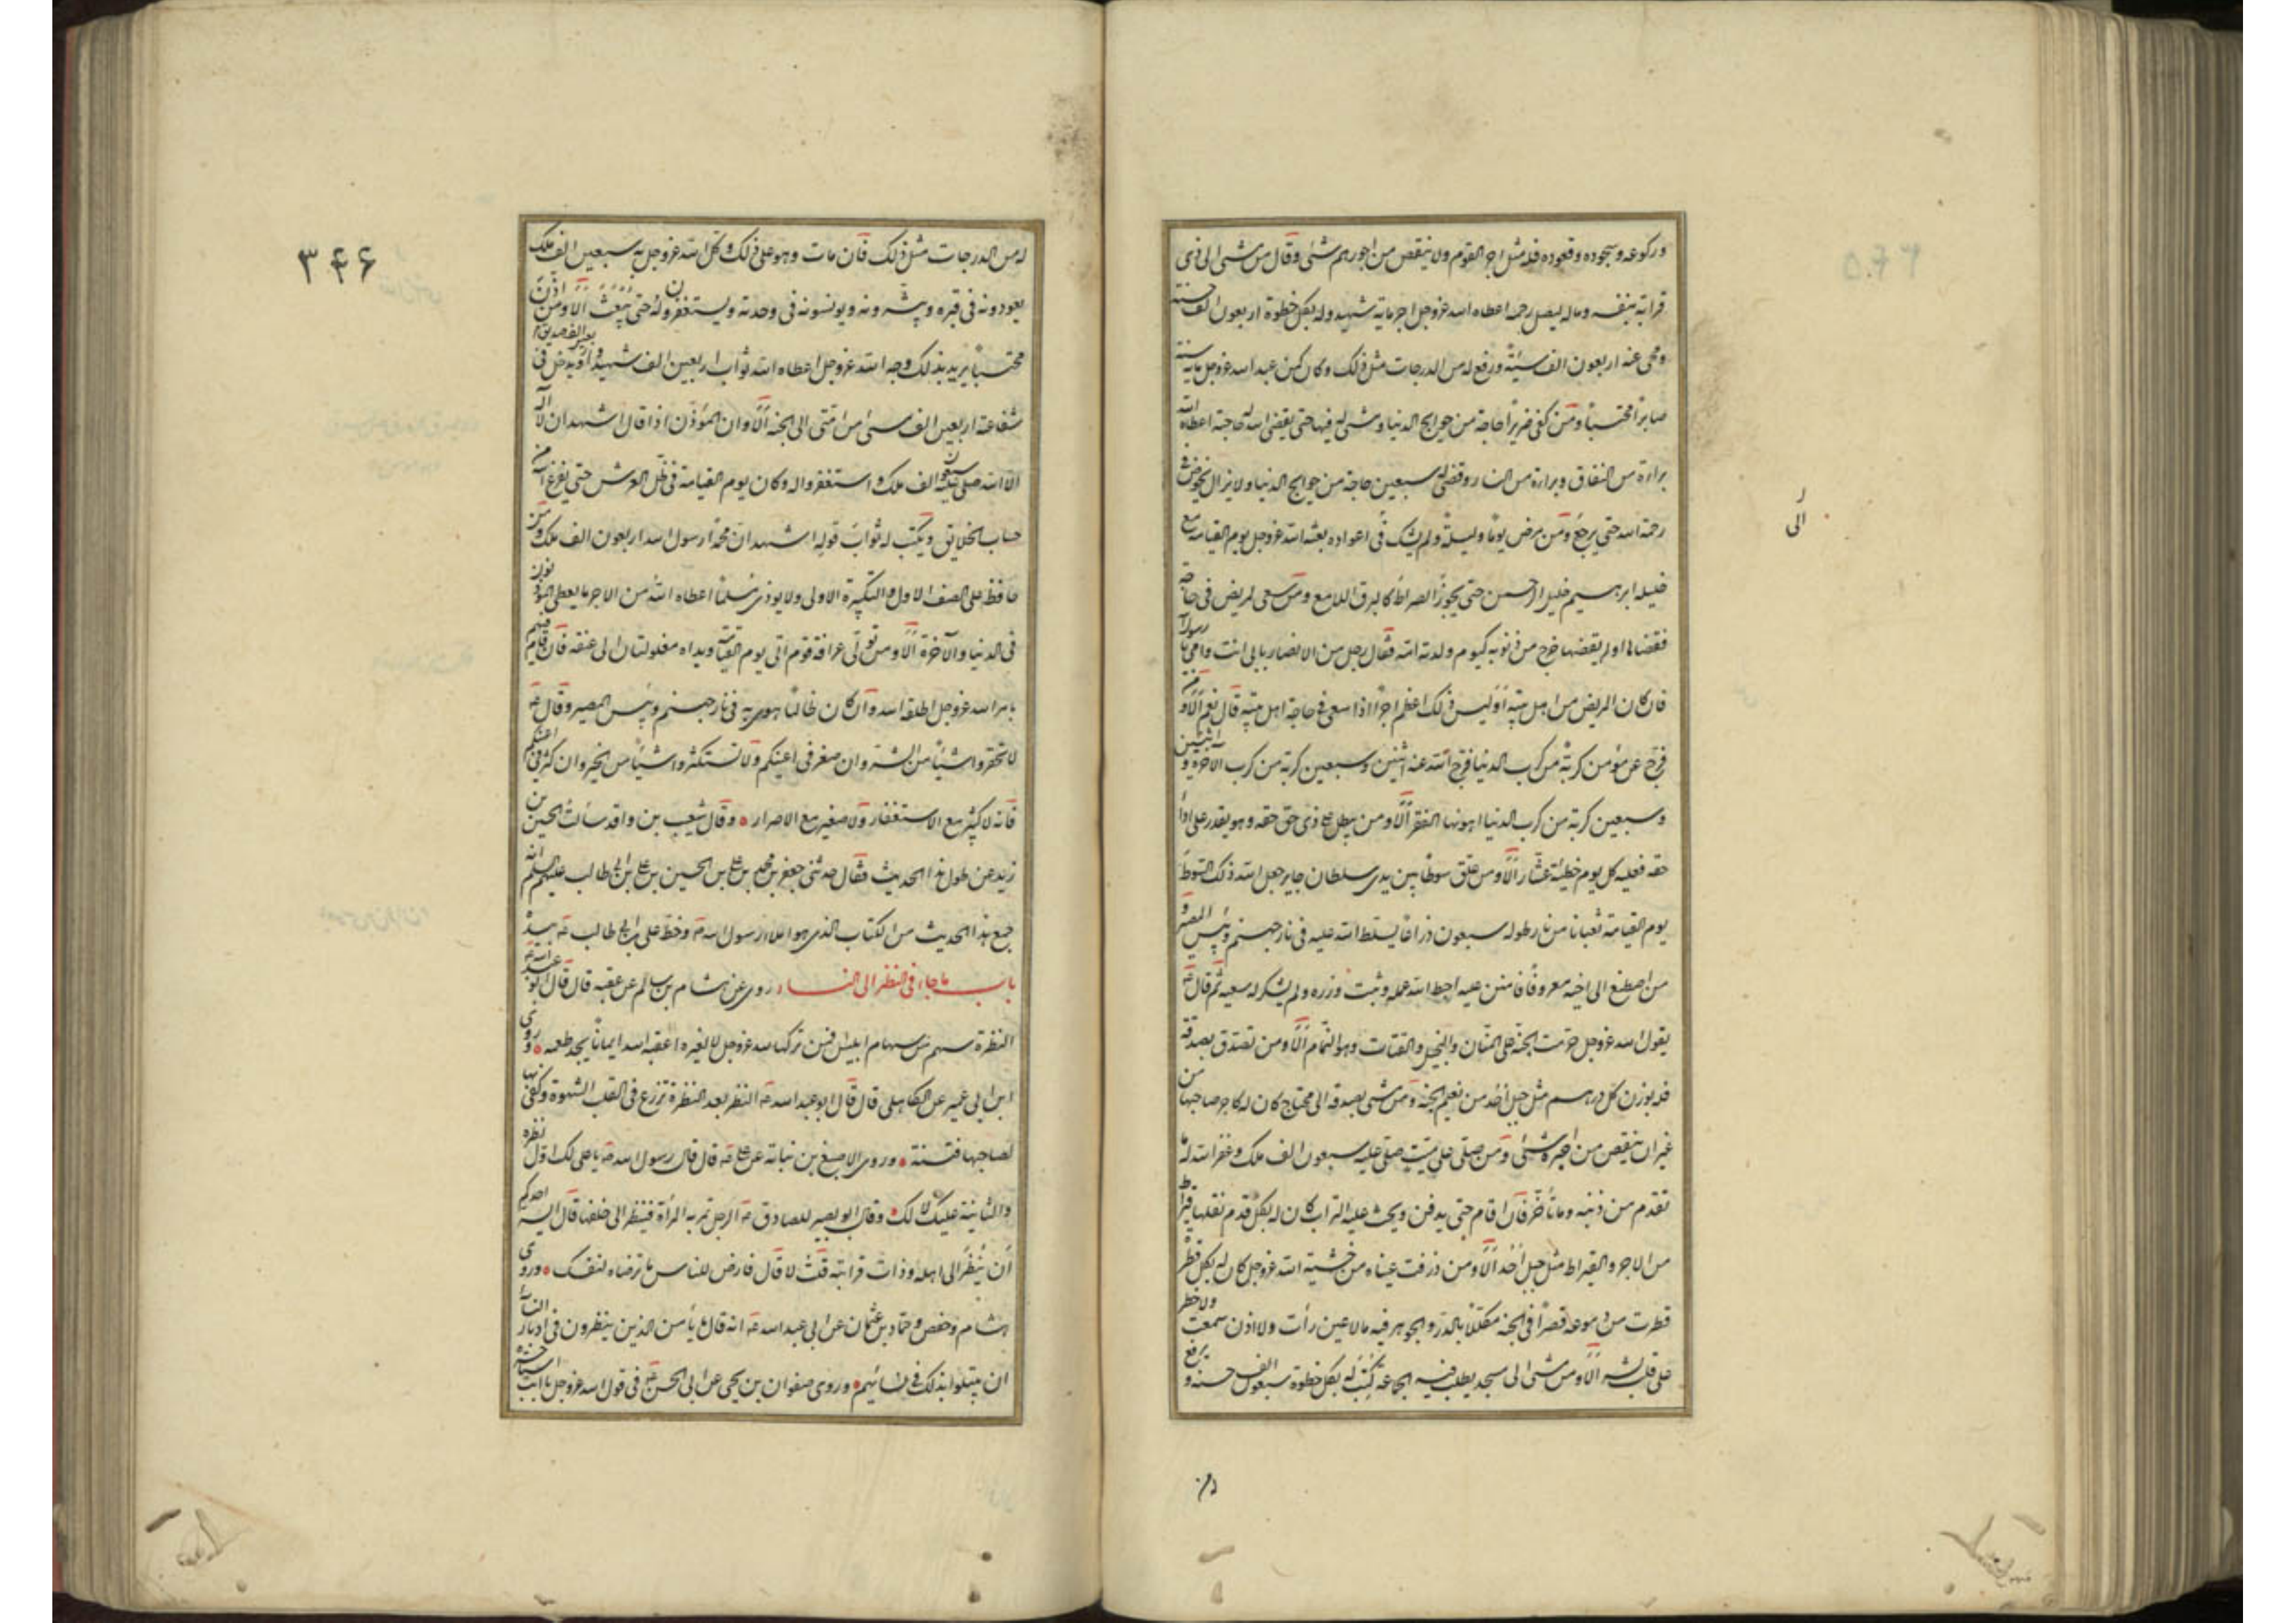 وركوعه وسجوده وقعوده فله مثل اجر القوم ولا ينقص من اجورهم شئ وقال من مشى الى ذى
قرابة بنفسه وماله ليصل رحمه اعطاه الله عزوجل اجر ماية شهيد وله بكل خطوة اربعون الف حسنة
ومحى عنه اربعون الف سيئة ورفع له من الدرجات مثل ذلك وكان كمن عبد الله عزوجل ماية سنة
صابراً محتسباً ومن كفى ضريراً حاجة من حوايج الدنيا ومشى له فيها حتى يقضى الله له حاجته اعطاه الله
براءة من النفاق وبراءة من النار وقضى له سبعين حاجة من حوايج الدنيا ولا يزال يخوض فى
رحمة الله حتى يرجع ومن مرض يوماً وليلة ولم يشك فى اعواده بعثه الله عزوجل يوم القيامة مع
خليله ابرهيم خليل الرحمن حتى يجوز الصراط كالبرق اللامع ومن سعى لمريض فى حاجة
فقضاها او لم يقضها خرج من ذنوبه كيوم ولدته امه فقال رجل من الانصار بابى انت وامى يا رسول الله
فان كان المريض من اهل بيته اوليس ذلك اعظم اجراً اذا سعى فى حاجة اهل بيته قال نعم الا ومن
فرج عن مؤمن كربة من كرب الدنيا فرج الله عنه اثنين وسبعين كربة من كرب الآخرة و اثنتين
وسبعين كربة من كرب الدنيا اهونها الفقر الا ومن يبطل على ذى حق حقه وهو يقدر على اداء
حقه فعليه كل يوم خطيئة عشار الا ومن علق سوطاً بين يدى سلطان جاير جعل الله ذلك السوط
يوم القيامة ثعباناً من نار طوله سبعون ذراعاً يسلط الله عليه فى نار جهنم وبئس المصير و
من اصطنع الى اخيه معروفاً فامتن عليه احبط الله عمله وثبت وزره ولم يشكر له سعيه ثم قال ع
يقول الله عزوجل حرمت الجنة على المنان والبخيل والقتات وهو النمام الا ومن تصدق بصدقة
فله بوزن كل درهم مثل جبل احد من نعيم الجنة ومن مشى بصدقة الى محتاج كان له كاجر صاحبها من
غير ان ينقص من اجره شئ ومن صلى على ميت صلى عليه سبعون الف ملك وغفر الله له ما
تقدم من ذنبه وما تأخر فان اقام حتى يدفن ويحث عليه التراب كان له بكل قدم نقلها قيراط
من الاجر والقيراط مثل جبل احد الا ومن ذرفت عيناه من خشية الله عزوجل كان له بكل قطرة
قطرت من دموعه قصراً فى الجنة مكللاً بالدر والجوهر فيه ما لا عين رأت ولا اذن سمعت ولا خطر
على قلب بشر الا ومن مشى الى مسجد يطلب فيه الجماعة كتب له بكل خطوة سبعون الف حسنة و يرفع
الى
٣٤٦
له من الدرجات مثل ذلك فان مات وهو على ذلك وكل الله عزوجل به سبعين الف ملك
يعودونه فى قبره ويبشرونه ويونسونه فى وحدته ويستغفرون له حتى يبعث الا ومن اذن
محتسباً يريد بذلك وجه الله عزوجل اعطاه الله ثواب اربعين الف شهيد و اربعين الف صديق ويدخل فى
شفاعته اربعين الف مسئ من امتى الى الجنة الا وان المؤذن اذا قال اشهد ان لا اله
الا الله صلى عليه سبعون الف ملك واستغفروا له وكان يوم القيامة فى ظل العرش حتى يفرغ الله من
حساب الخلايق ويكتب له ثواب قوله اشهد ان محمداً رسول الله اربعون الف ملك ومن
حافظ على الصف الاول والتكبيرة الاولى ولا يوذى مسلماً اعطاه الله من الاجر ما يعطى المؤذنون
فى الدنيا والآخرة الا ومن تولى عرافة قوم اتى يوم القيمة ويداه مغلولتان الى عنقه فان قام فيهم
بامر الله عزوجل اطلقه الله وان كان ظالماً هوى به فى نار جهنم وبئس المصير وقال ع
لا تحقروا شيئاً من الشر وان صغر فى اعينكم ولا تستكثروا شيئاً من الخير وان كثر فى اعينكم
فانه لا كثير مع الاستغفار ولا صغير مع الاصرار وقال شعيب بن واقد سألت الحسين بن
زيد عن طول هذا الحديث فقال حدثنى جعفر بن محمد بن على بن الحسين بن على بن ابى طالب عليهم السلم انه
جمع هذا الحديث من الكتاب الذى هو املاء رسول الله ص وخط على بن ابى طالب ع بيده
باب ما جاء فى النظر الى النساء روى عن هشام بن سالم عن عقبه قال قال ابو عبد الله ع
النظرة سهم من سهام ابليس فمن تركها لله عزوجل لا لغيره اعقبه الله ايماناً يجد طعمه وروى
ابن ابى عمير عن الكاهلى قال قال ابو عبد الله ع النظر بعد النظرة تزرع فى القلب الشهوة وكفى بها
لصاحبها فتنة وروى الاصبغ بن نباتة عن على ع قال قال رسول الله ص يا على لك اول نظرة
والثانية عليك لا لك وقال ابو بصير للصادق ع الرجل تمر به المرأة فينظر الى خلفها قال ايسر احدكم
ان ينظر الى اهله وذات قرابته قلت لا قال فارض للناس ما ترضاه لنفسك وروى
هشام وحفص وحماد بن عثمان عن ابى عبد الله ع انه قال ما يأمن الذين ينظرون فى ادبار النساء
ان يبتلوا بذلك فى نسائهم وروى صفوان بن يحيى عن ابى الحسن ع فى قول الله عزوجل يا ابت استأجره